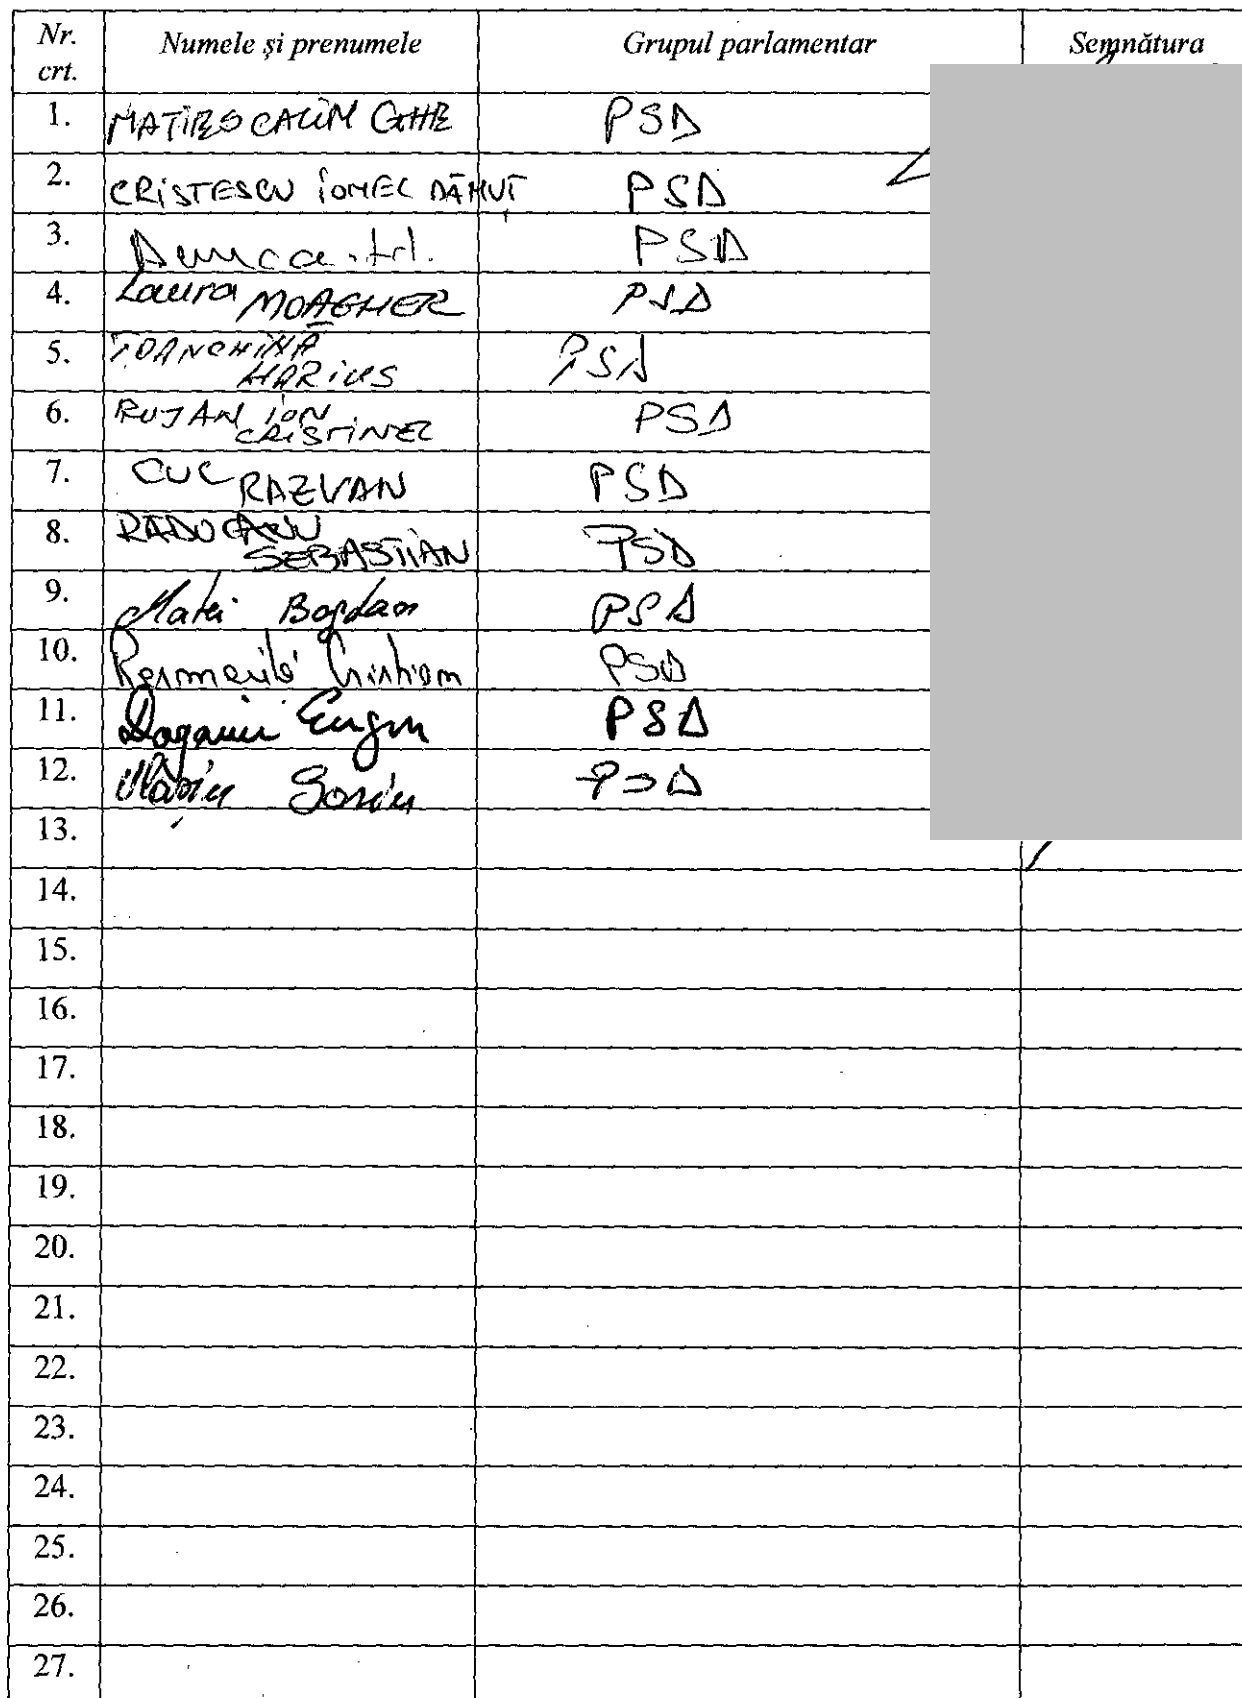 Nr. crt. Numele și prenumele Grupul parlamentar Semnătura
1. MATIEȘ CALIN GHE PSD
2. CRISTESCU IONEL DĂNUȚ PSD
3. PSD
4. Laura MOAGHER PSD
5. TOANCHINĂ MARIUS PSD
6. RUJAN ION CRISTINEL PSD
7. CUC RAZVAN PSD
8. RADUCANU SEBASTIAN PSD
9. Matei Bogdan PSD
10. PSD
11. PSD
12. Sorin PSD
13.
14.
15.
16.
17.
18.
19.
20.
21.
22.
23.
24.
25.
26.
27.